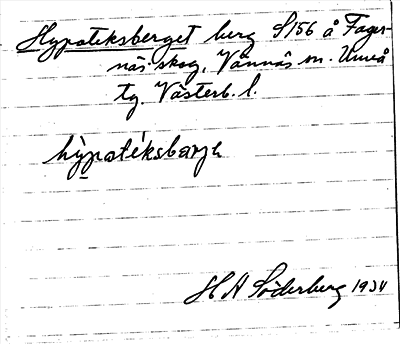 Hypoteksberget berg S156 å Fager-
näs skog, Vännäs sn. Umeå
tg. Västerb. l.
hỳpotéksbarjə
H A Söderberg 1934